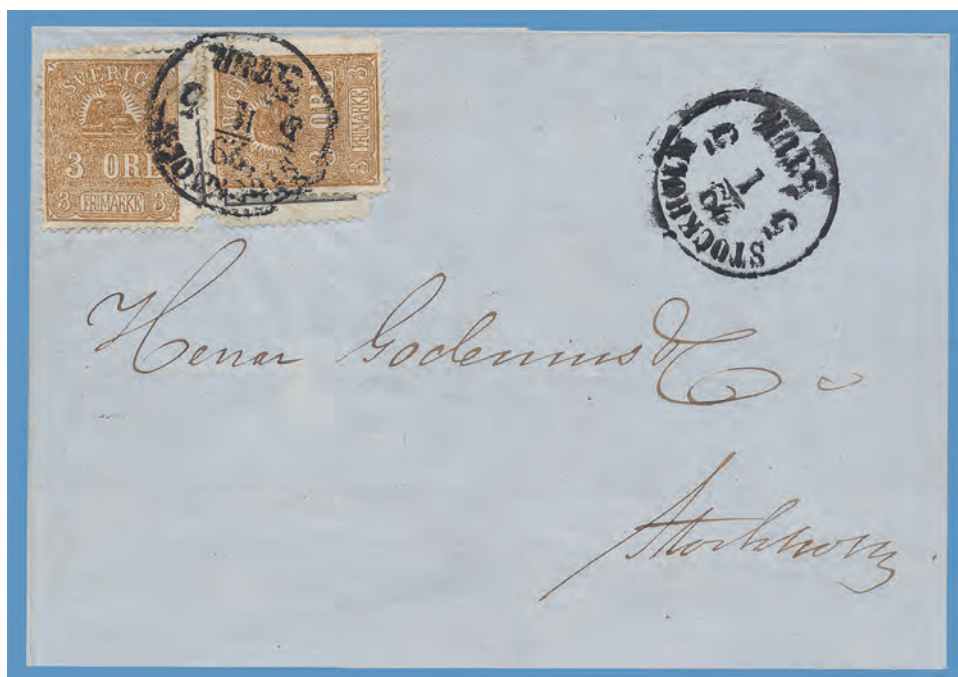 SVERIGE
3 ÖRE
3 FRIMÄRKE 3
ÖRE
3 FRIMÄRKE 3
STOCKHOLM
STOCKHOLM
5
1
Herrar Godenius & C
Stockholm.